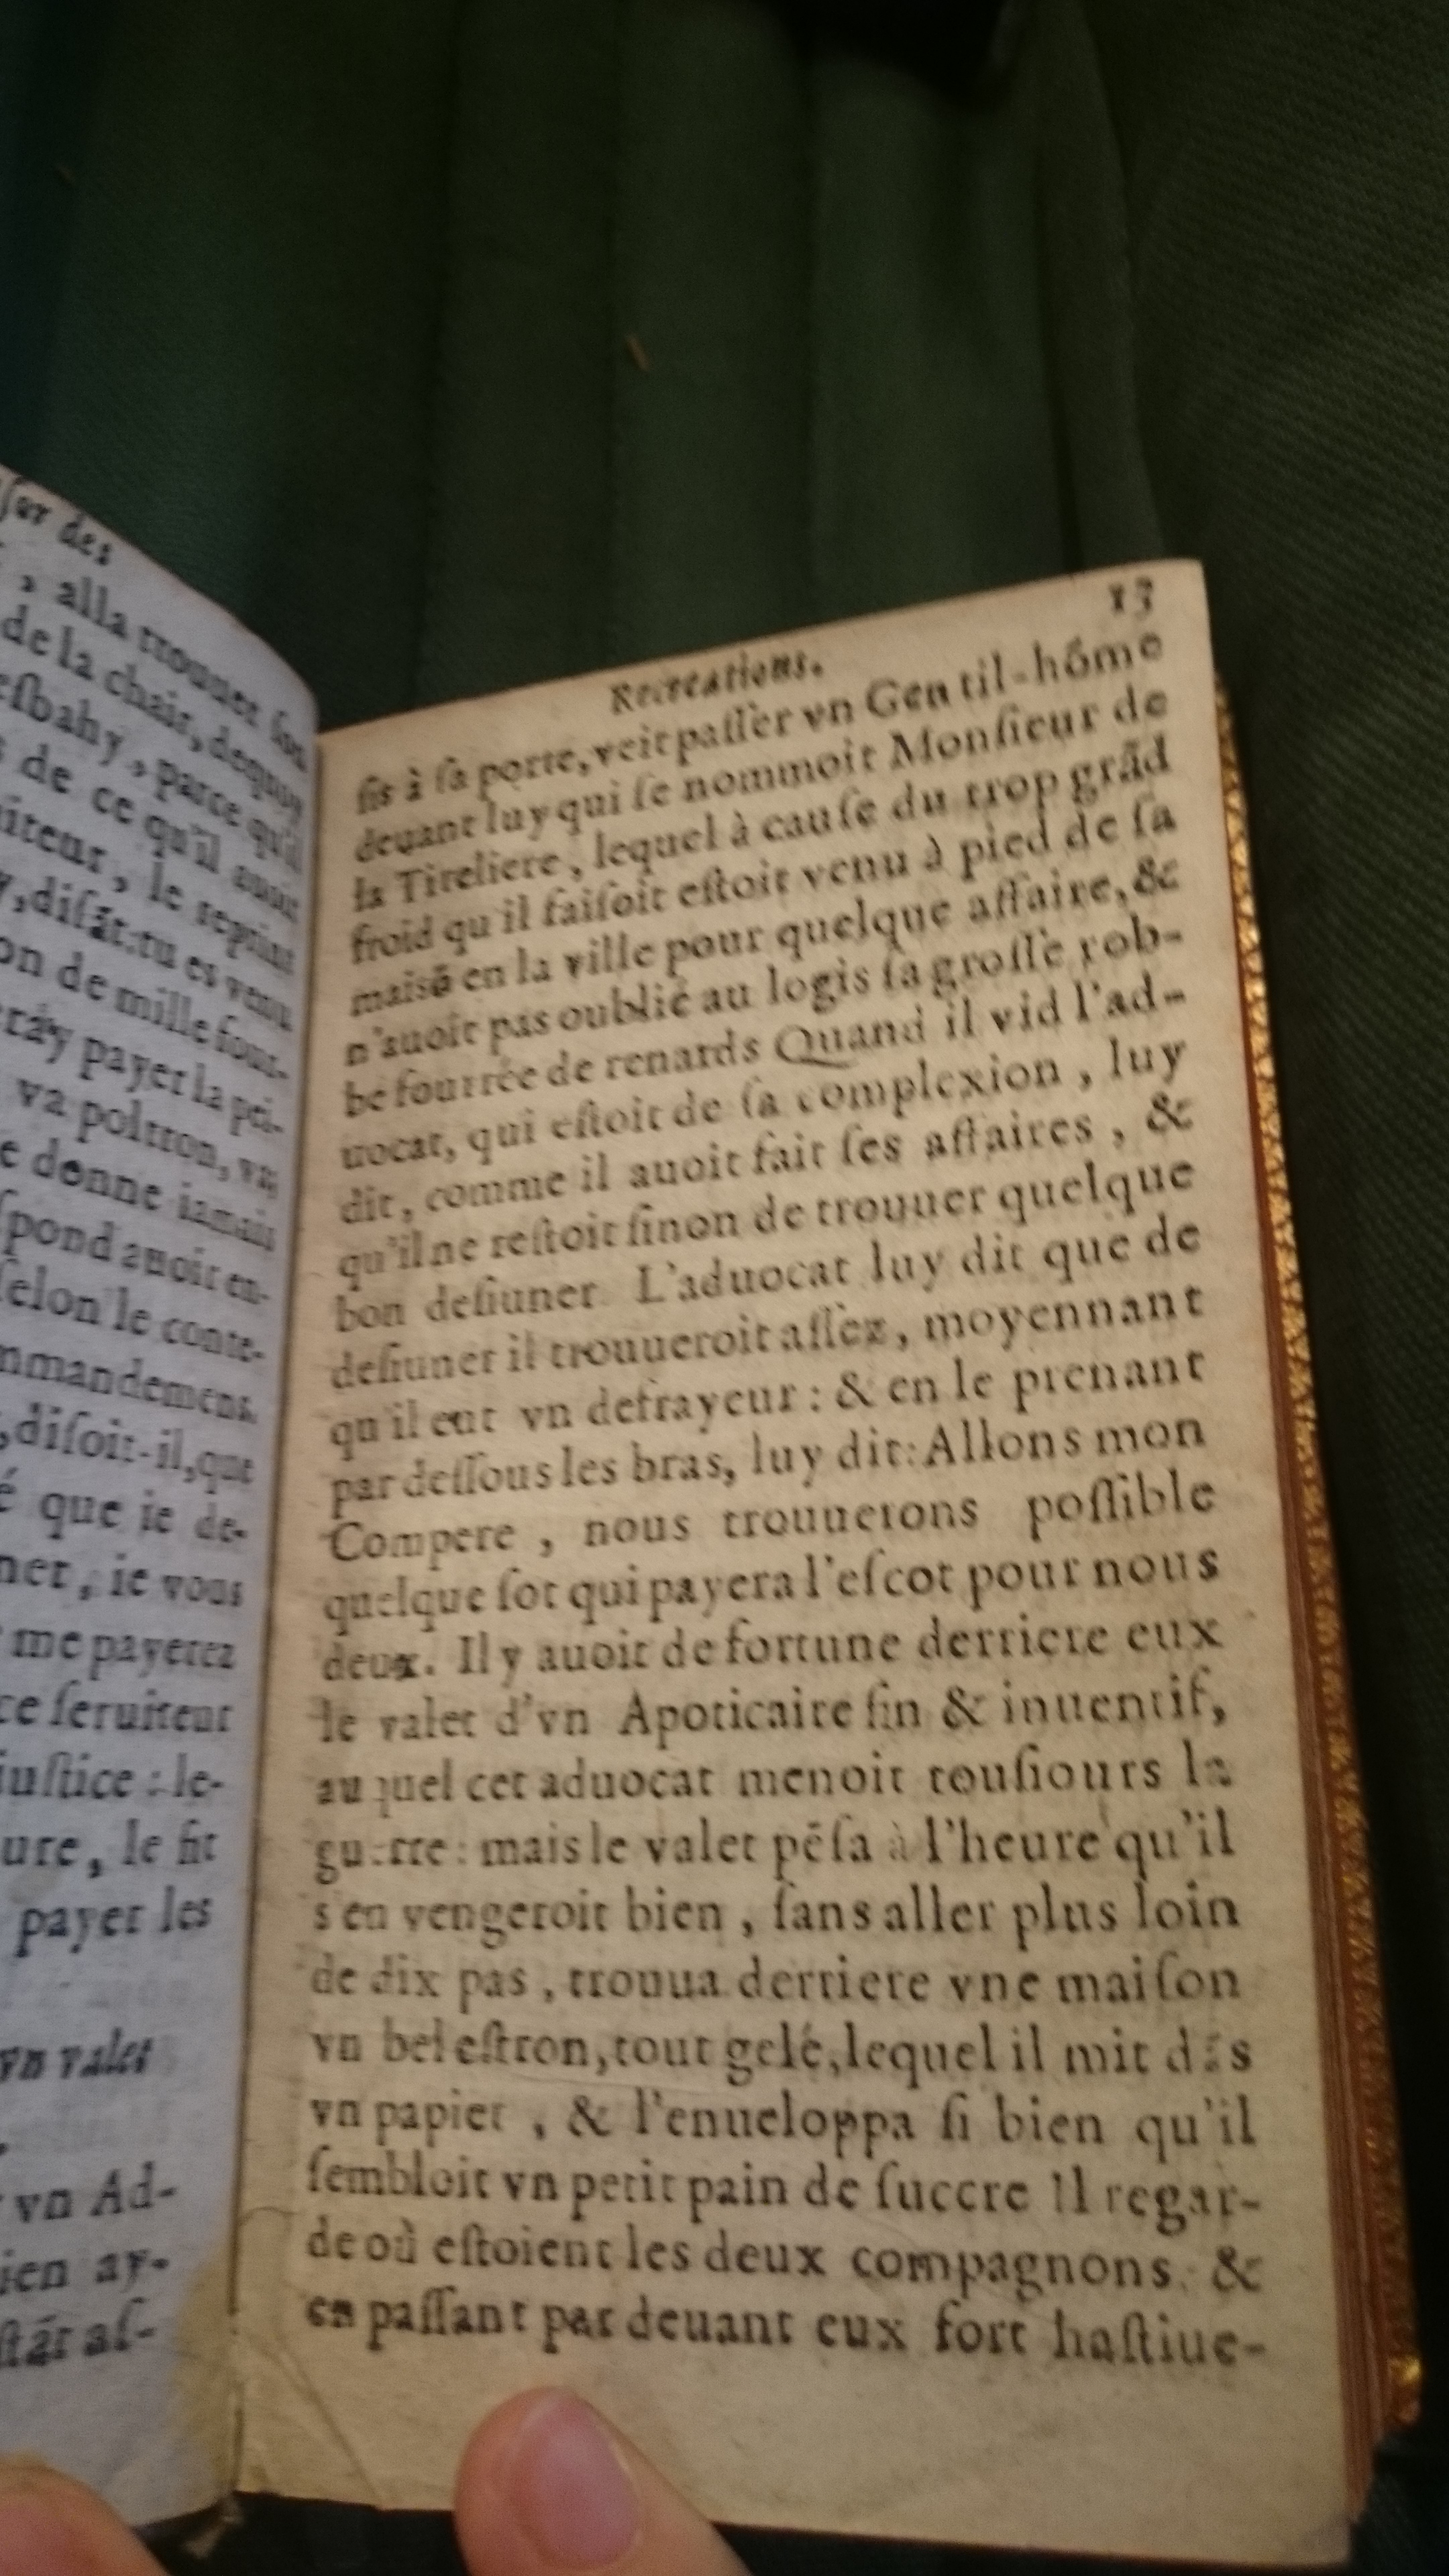 ſur des
, alla trouuer ſon
de la chair, dequoy
eſbahy, parce qu'il
de ce qu'il auoit
iteur, le reprint
,diſāt: tu es venu
on de mille four-
ray payer la pei-
va poltron, va,
e donne iamais
ſpond auoir en-
ſelon le conte-
mmandemens.
,diſoit-il, que
é que ie de-
ner, ie vous
me payerez
ce ſeruiteur
iuſtice : le-
ure, le fit
payer les
vn valet
vn Ad-
ien ay-
ſtāt aſ-
Recreations. 13
ſis à ſa porte, veit paſſer vn Gentil-hōme
deuant luy qui ſe nommoit Monſieur de
la Tireliere, lequel à cauſe du trop grād
froid qu'il faiſoit eſtoit venu à pied de ſa
maisō en la ville pour quelque affaire, &
n'auoit pas oublié au logis ſa groſſe rob-
be fourrée de renards Quand il vid l'ad-
uocat, qui eſtoit de ſa complexion, luy
dit, comme il auoit fait ſes affaires, &
qu'il ne reſtoit ſinon de trouuer quelque
bon deſiuner. L'aduocat luy dit que de
deſiuner il trouueroit aſſez, moyennant
qu'il eut vn defrayeur : & en le prenant
par deſſous les bras, luy dit: Allons mon
Compere, nous trouuerons poſſible
quelque ſot qui payera l'eſcot pour nous
deux. Il y auoit de fortune derriere eux
le valet d'vn Apoticaire fin & inuentif,
auquel cet aduocat menoit touſiours la
guerre : mais le valet pēſa à l'heure qu'il
s'en vengeroit bien, ſans aller plus loin
de dix pas, trouua derriere vne maiſon
vn bel eſtron, tout gelé, lequel il mit dās
vn papier, & l'enueloppa ſi bien qu'il
ſembloit vn petit pain de ſuccre Il regar-
de où eſtoient les deux compagnons. &
en paſſant par deuant eux fort haſtiue-